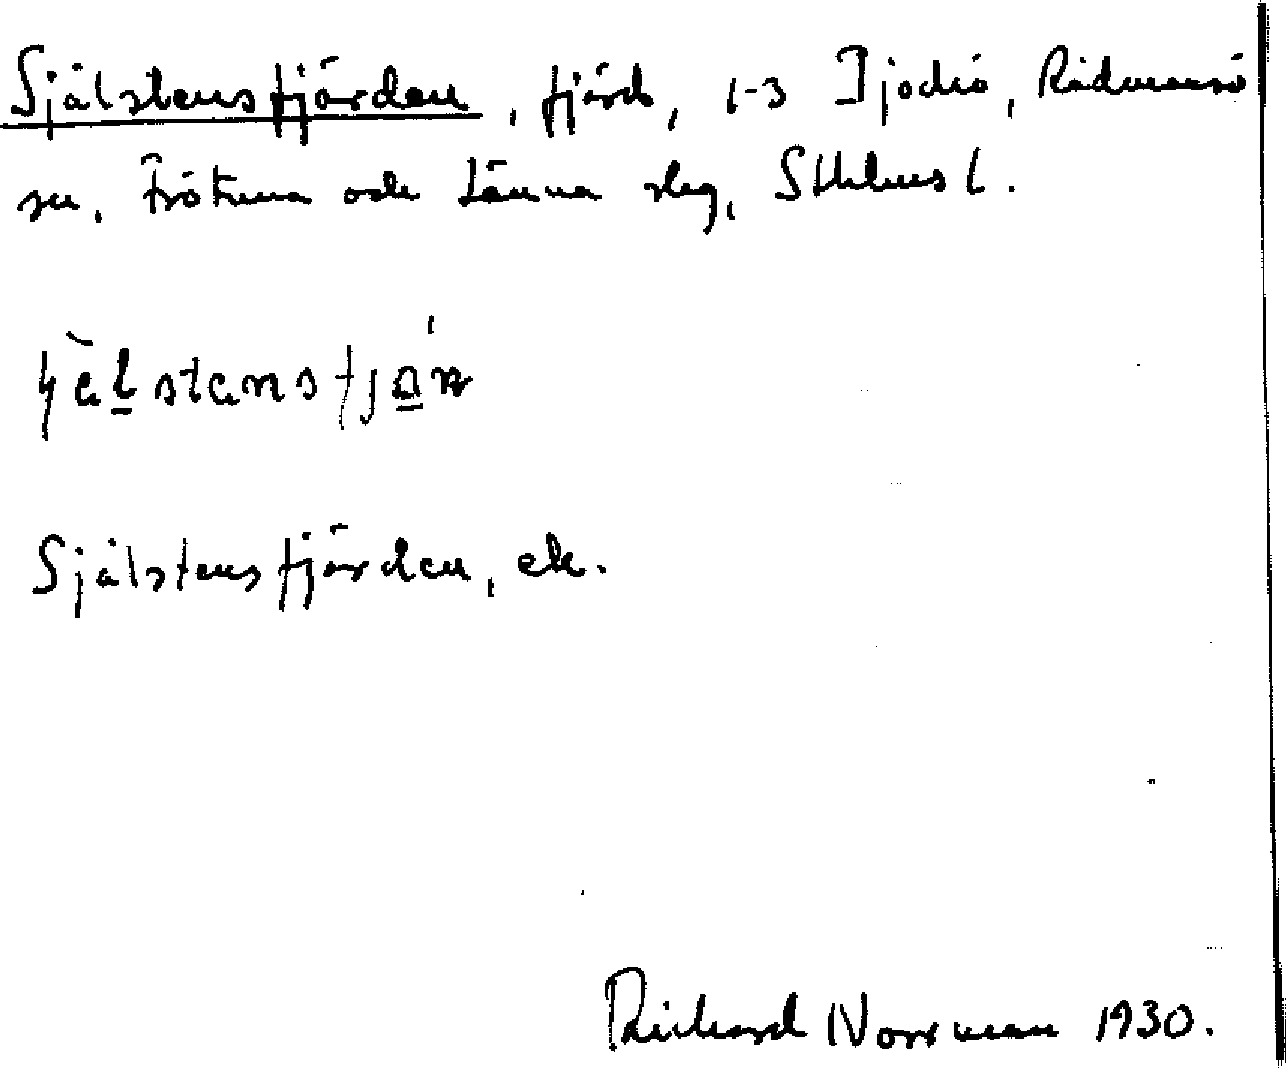 Själstensfjärden, fjärd, 1-3 Tjockö, Rådmansö
sn, Frötuna och Länna slg, Sthlms l.
Själstensfjärden, ek.
Richard Norrman 1930.